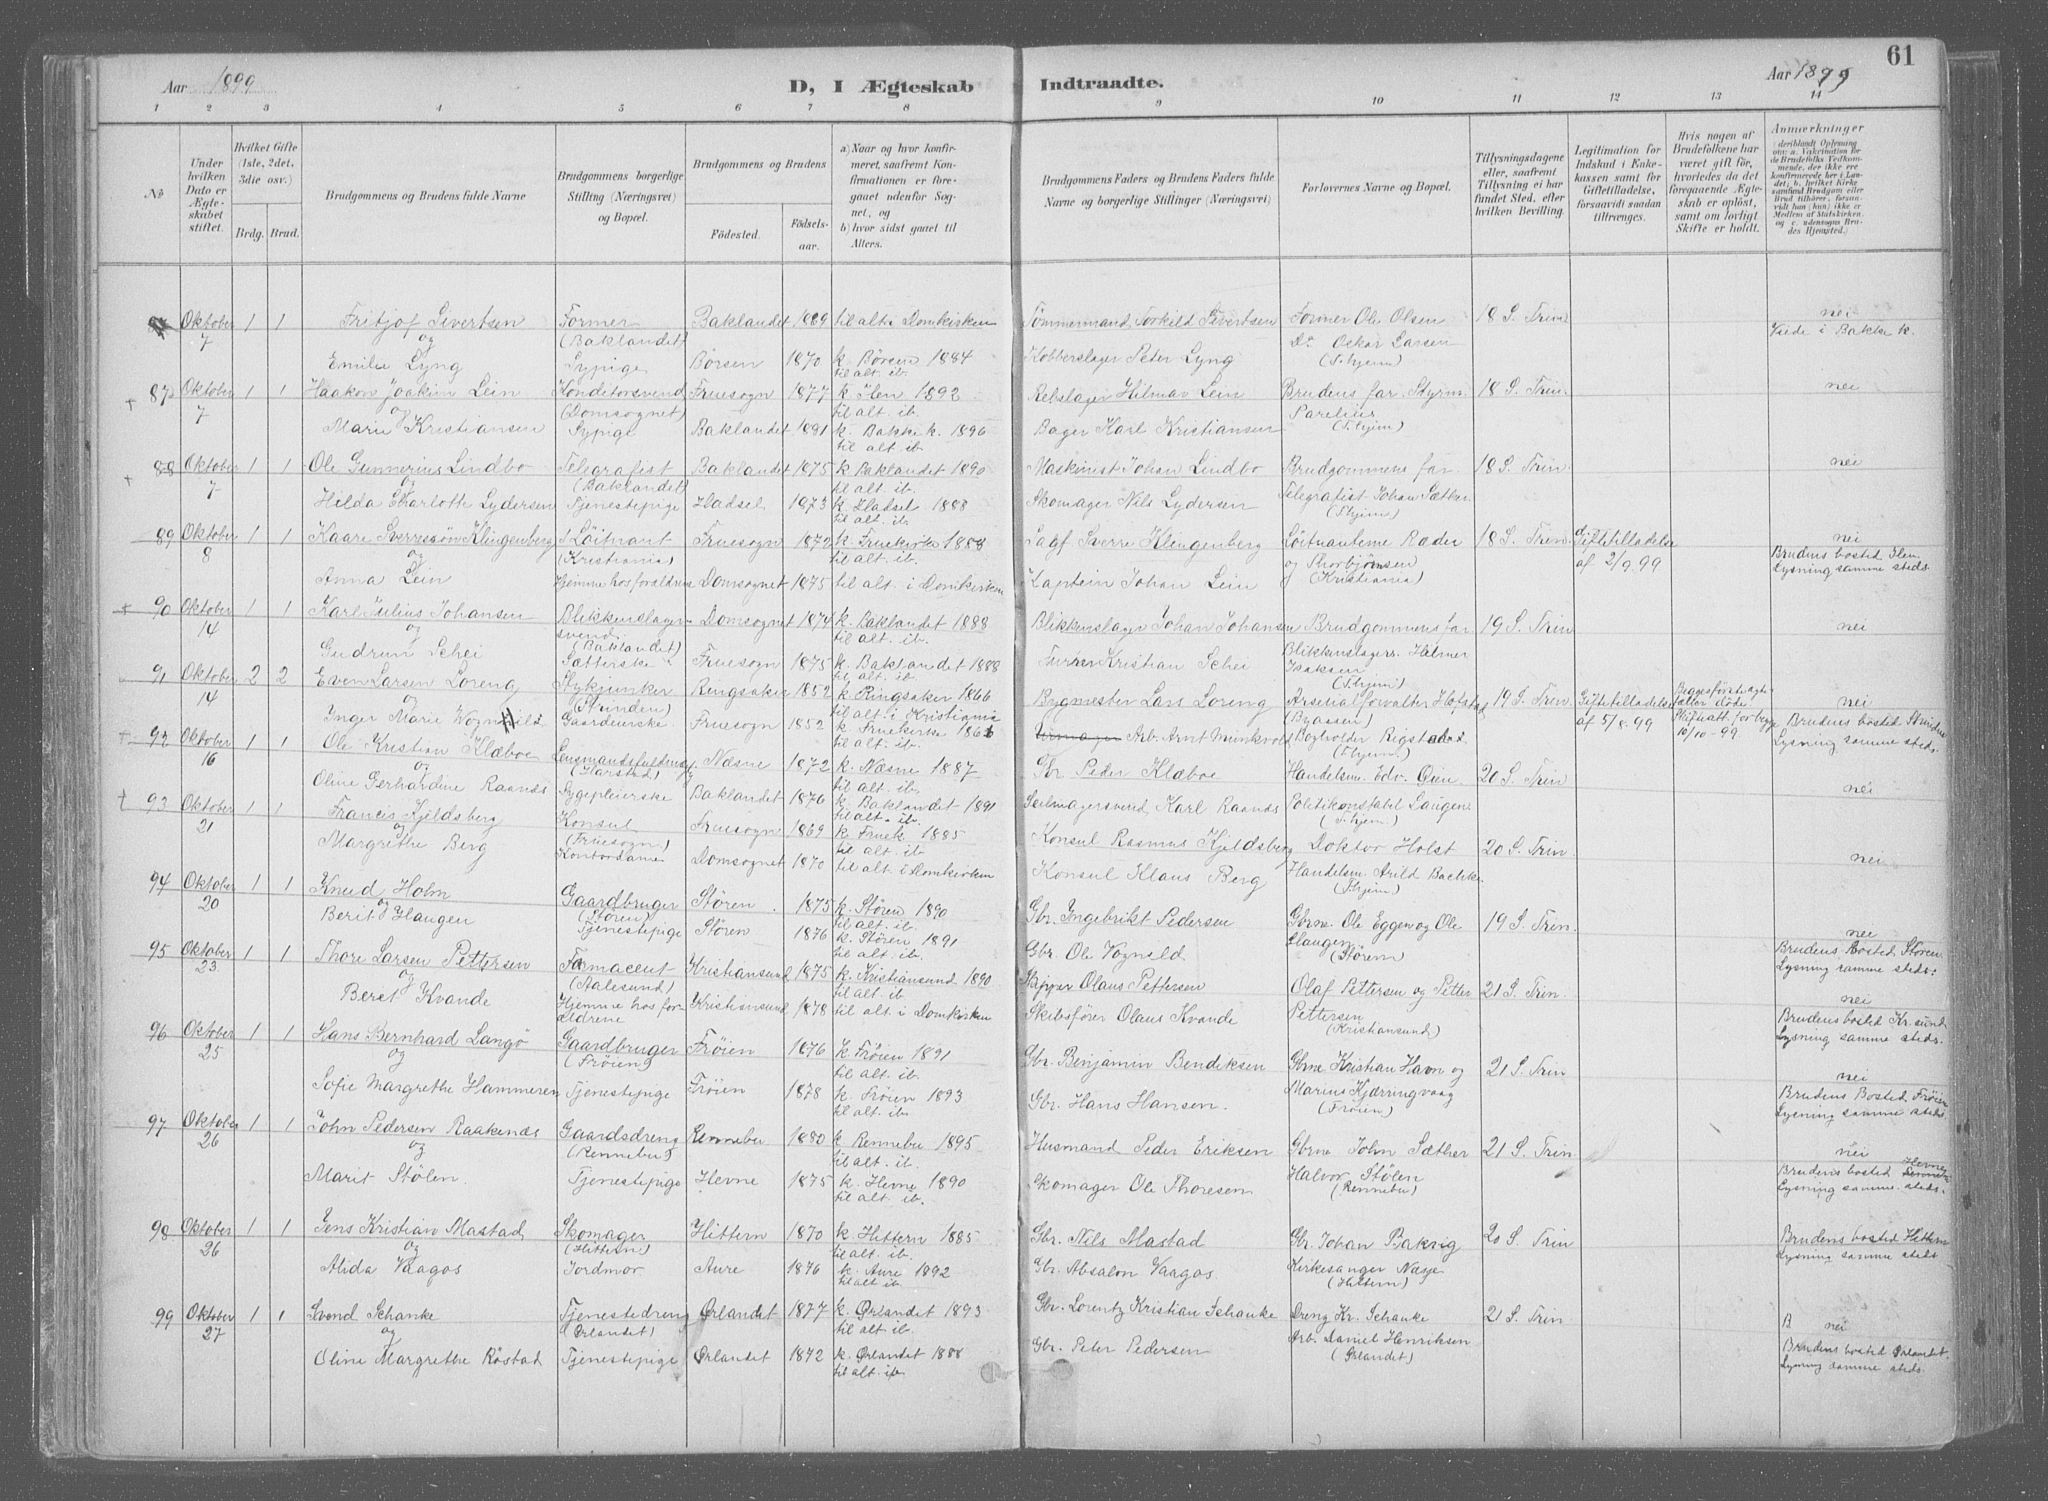 61
Aar 1899 D, I Ægteskab Indtraadte. Aar 1899
1 2 3 4 5 6 7 8 9 10 11 12 13 14
No
Under hvilken Dato er Ægteskabet stiftet.
Hvilket Gifte (1ste, 2det, 3die osv.)
Brdg. Brud.
Brudgommens og Brudens fulde Navne
Brudgommens borgerlige Stilling (Næringsvei) og Bopæl.
Brudgommens og Brudens
Fødested. Fødselsaar.
a) Naar og hvor konfirmeret, saafremt Konfirmationen er foregaaet udenfor Sognet, og
b) hvor sidst gaaet til Alters.
Brudgommens Faders og Brudens Faders fulde Navne og borgerlige Stillinger (Næringsvei)
Forlovernes Navne og Bopæl.
Tillysningsdagene eller, saafremt Tillysning ei har fundet Sted, efter hvilken Bevilling.
Legitimation for Indskud i Enkekassen samt for Giftetilladelse, forsaavidt saadan tiltrænges.
Hvis nogen af Brudefolkene har været gift før, hvorledes da det foregaaende Ægteskab er opløst, samt om lovligt Skifte er holdt.
Anmærkninger
Oktober 7 1 1 Fritjof Sivertsen Former (Baklandet) Baklandet 1869 til alt. i Domkirken Tømmermand Torkild Sivertsen Former Ole Olsen 18 S. Trin. nei
og Do Oskar Larsen Viede i Bakke k.
Emilie Lyng Sypige Børsen 1870 k. Børsen 1884 til alt. ib. Kobberslager Peter Lyng (T.hjem)
87 Oktober 7 1 1 Haakon Joakim Lein Konditorsvend (Domsognet) Fruesogn 1877 k. Ilen 1892 til alt. ib. Rebslager Hilmar Lein Brudens far. Styrm. Parelius (T.hjem) 18 S. Trin. nei
og
Marie Kristiansen Sypige Baklandet k. Bakke k. 1896 til alt. ib. Bager Karl Kristiansen
88 Oktober 7 1 1 Ole Gunnerius Lindbo Telegrafist (Baklandet) Baklandet 1875 k. Baklandet 1890 til alt. ib. Maskinist Johan Lindbo Brudgommens far. 18 S. Trin. nei
og
Hilda Charlotte Lydersen Tjenestepige Hadsel 1873 k. Hadsel 1888 til alt. ib. Skomager Nils Lydersen Telegrafist Johan Sæther (T.hjem)
89 Oktober 8 1 1 Kaare Sverressøn Klingenberg Løitnant (Kristiania) Fruesogn 1872 k. Fruekirke 1888 til alt. ib. Sagf. Sverre Klingenberg Løitnanterne Rader og Thorbjørnsen (Kristiania) 18 S. Trin. Giftetilladelse af 2/9.99 nei
og Brudens bosted Ilen. Lysning samme steds
Anna Lein Hjemme hos forældrene Domsognet 1875 til alt. i Domkirken Kaptein Johan Lein
90 Oktober 14 1 1 Karl Julius Johansen Blikkenslagersvend (Baklandet) Domsognet 1874 k. Baklandet 1888 til alt. ib. Blikkenslager Johan Johansen Brudgommens far. 19 S. Trin nei
og
Gudrun Schei Sætterske Fruesogn 1875 k. Baklandet 1888 til alt. ib. Kristian Schei Blikkenslagers. Hilmer Isaksen (T.hjem)
91 Oktober 14 2 2 Even Larsen Loreng Stykjunker (Strinden) Ringsaker 1852 k. Ringsaker 1866 til alt. i Kristiania Bygmester Lars Loreng Arsenalforvalter Hofstad (Byaasen) 19 S. Trin. Giftetilladelse af 5/8.99 Begges første ægtefæller døde. Skifteatt. for begge 10/10-99 nei
og Brudens bosted Strinden Lysning samme steds.
Inger Marie Gaardeierske Fruesogn 1852 k. Fruekirke til alt. ib. Arb. Arnt Munkvold Bogholder Rigstad (T.hjem)
92 Oktober 16 1 1 Ole Kristian Klæboe Lensmandsfuldmæg. (Harstad) Næsne 1872 k. Næsne 1887 til alt. ib. Gbr. Peder Klæboe Handelsm. Edv. Øien 20 S. Trin nei
og
Oline Gerhardine Raanæs Sygepleierske Baklandet 1876 k. Baklandet 1891 til alt. ib. Seilmagersvend Karl Raanæs Politikonstabel Laugen (T.hjem)
93 Oktober 21 1 1 Francis Kjeldsberg Konsul (Fruesogn) Fruesogn 1869 k. Fruek. 1885 til alt. ib. Konsul Rasmus Kjeldsberg Doktor Holst 20 S. Trin nei
og
Margrethe Berg Kontordame Domsognet 1870 til alt. i Domkirken Konsul Klaus Berg Handelsm. Arild Bachke (T.hjem)
94 Oktober 20 1 1 Knud Holm Gaardbruger (Støren) Støren 1875 k. Støren 1890 til alt. ib. Gbr. Ingebrikt Pedersen Gbrne. Ole Eggen og Ole Haugen (Støren) 19 S. Trin. nei
og Brudens bosted Støren Lysning samme steds.
Berit Haugen Tjenestepige Støren 1876 k. Støren 1891 til alt. ib. Gbr. Ole Vognild
95 Oktober 23 1 1 Thore Larsen Pettersen Farmaceut (Aalesund) Kristiansund 1875 k. Kristiansund 1890 til alt. ib. Skipper Olaus Pettersen Olaf Pettersen og Petter Pettersen (Kristiansund) 21 S. Trin. nei
og Brudens bosted Kr.sund Lysning samme steds.
Beret Kvande Hjemme hos forældrene Kristiansund 1878 til alt. i Domkirken Skibsfører Olaus Kvande
96 Oktober 25 1 1 Hans Bernhard Langø Gaardbruger (Frøien) Frøien 1876 k. Frøien 1891 til alt. ib. Gbr. Benjamin Bendiksen Gbrne Kristian Havn og Marius Kjærringvaag (Frøien) 21 S. Trin nei
og Brudens Bosted Frøien Lysning samme steds
Sofie Margrethe Hammeren Tjenestepige Frøien 1878 k. Frøien 1893 til alt. ib. Gbr. Hans Hansen.
97 Oktober 26 1 1 John Pedersen Raakenæs Gaardsdreng (Rennebu) Rennebu 1880 k. Rennebu 1895 til alt. ib. Husmand Peder Eriksen Gbrne John Sæther Halvor Stølen (Rennebu) 21 S. Trin nei
og Brudens bosted Hevne Lysning samme steds.
Marit Stølen. Tjenestepige Hevne 1875 k. Hevne 1890 til alt. ib. Skomager Ole Thoresen
98 Oktober 26 1 1 Jens Kristian Mastad Skomager (Hittern) Hittern 1870 k. Hittern 1885 til alt. ib. Gbr. Nils Mastad Gbr. Johan Bakvig 20 S. Trin Brudens bosted Hittern Lysning samme steds
og
Alida Vaagos Jordmor Aure 1876 k. Aure 1892 til alt. ib. Gbr. Absalon Vaagos. Kirkesanger Næsje (Hittern)
99 Oktober 27 1 1 Svend Schanke Tjenestedreng (Ørlandet) Ørlandet 1877 k. Ørlandet 1893. til alt. ib. Gbr. Lorentz Kristian Schanke Dreng Kr. Schanke 21 S. Trin B nei
og Brudens bosted Ørlandet. Lysning samme steds.
Oline Margrethe Røstad Tjenestepige Ørlandet 1872 k. Ørlandet 1888 til alt. ib. Gbr. Peter Pedersen Arb. Daniel Henriksen (Ørlandet)